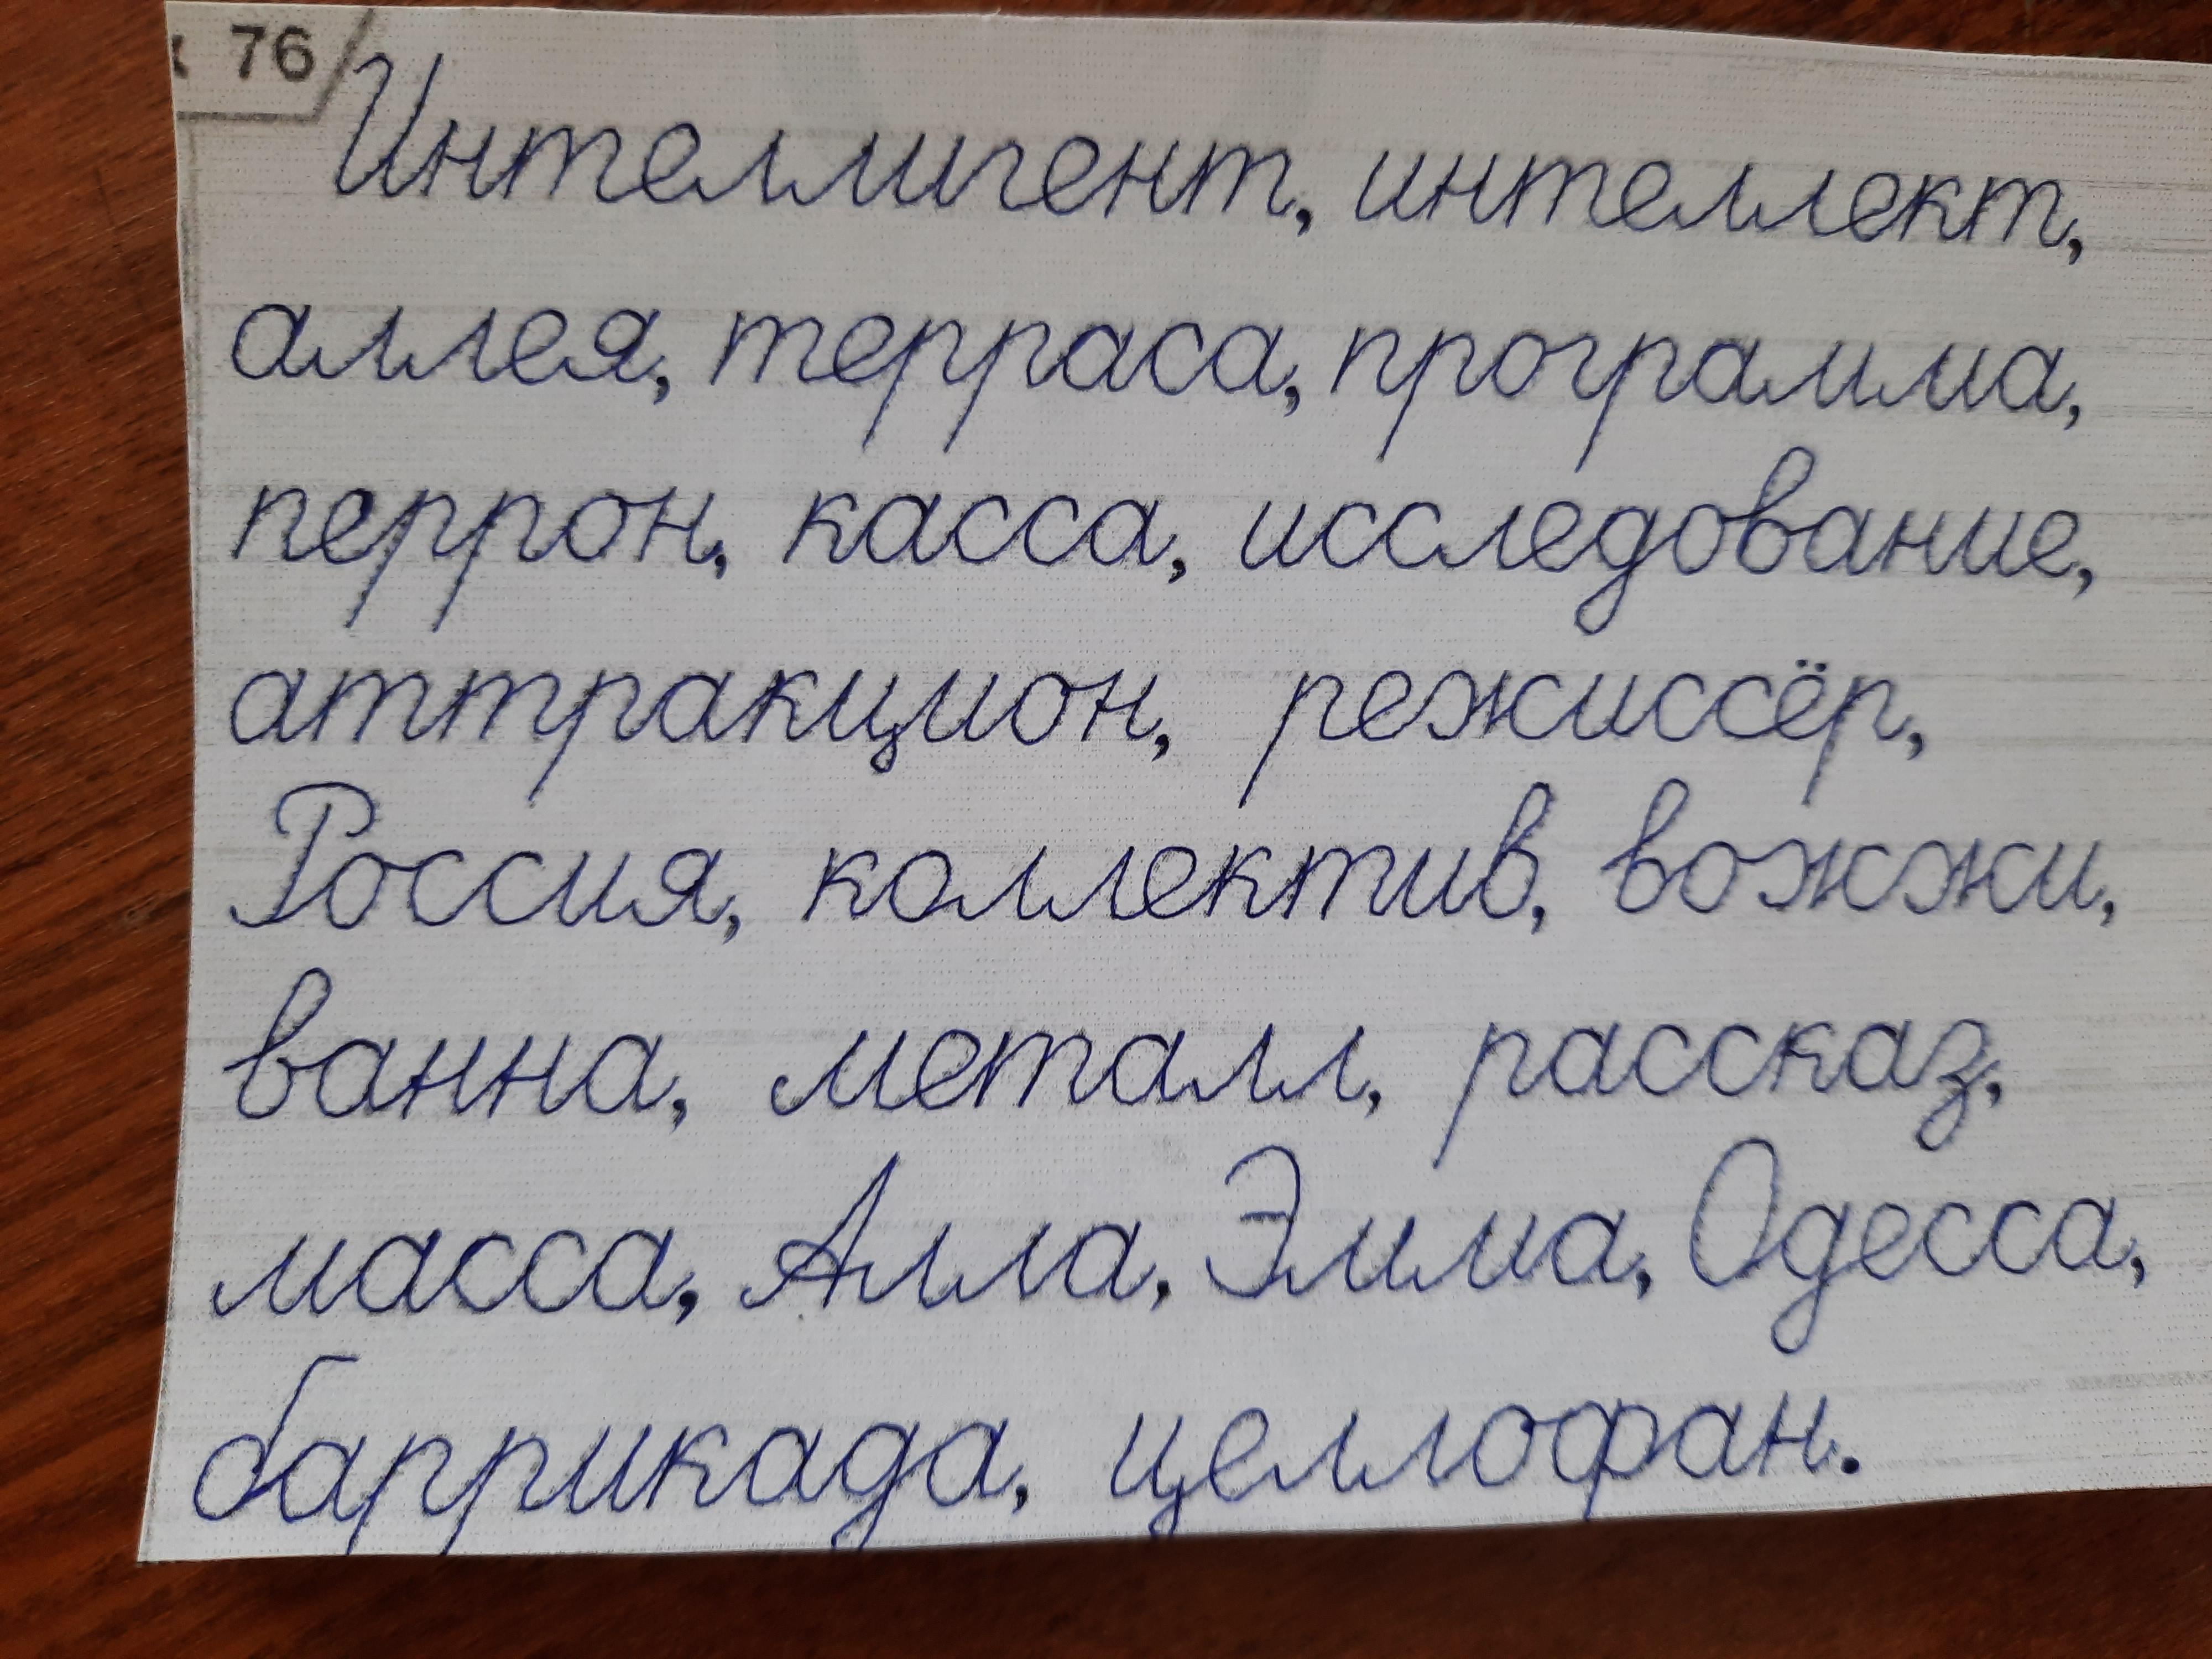 76
Интеллигент, интеллект,
аллея, терраса, программа,
перрон, касса, исследование,
аттракцион, режиссёр,
Россия, коллектив, вожжи,
ванна, металл, рассказ,
масса, Алла, Эмма, Одесса,
баррикада, целлофан.